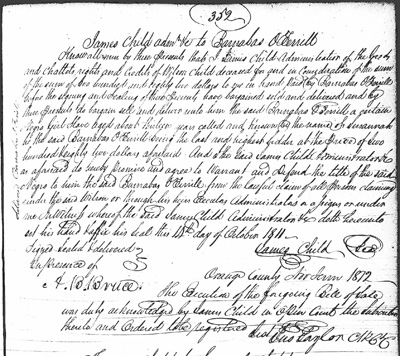 352
James Child admr &c to Barnabas O'Ferrill
Know all men by these Presents that I James Child Administrator of the Goods
and Chattels rights and Credits of Wilson Child deceased for and in Consideration of the sum
of the sum of two hundred and eighty two dollars to us in hand Paid by Barnabas O'Ferrill
before the signing and sealing of these Presents have bargained sold and delivered and by
these Presents do bargain sell and deliver unto him the said Barnabas O'Ferrill a certain
Negro Girl Slave aged about twelve years called and known by the name of Susannah
to the said Barnabas O'Ferrill being the last and highest bidder at the Price of two
hundred & eighty two dollars aforesaid And the said James Child Administrator &c
as aforesaid do hereby Promise and agree to Warrant and defend the title of the said
Negro to him the said Barnabas O'Ferrill from the lawful claim of all Persons claiming
under the said Wilson or through his Administrators as assigns or under
me In Witness whereof the said James Child Administrator &c doth hereunto
set his hand & affix his seal this 14th day of October 1811
Signed sealed & delivered James Child Seal
in Presence of
A. B. Bruce
Orange County Nov Term 1812
The Execution of the foregoing Bill of Sale
was duly acknowledged by James Child in Open Court the
thereto and Ordered to be registered
Test Jno Taylor Clk